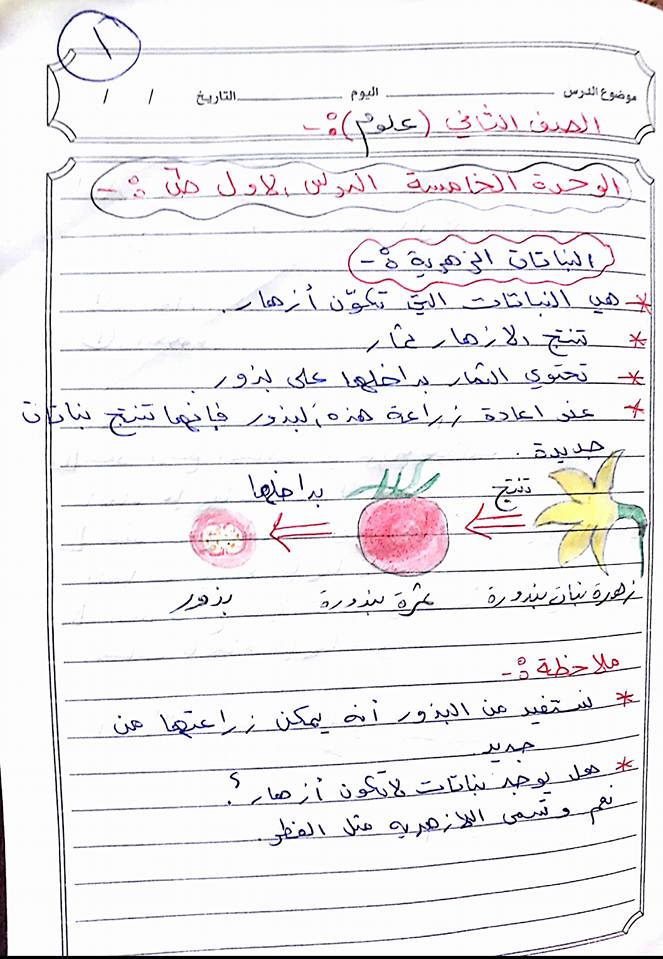 ١
موضوع الدرس اليوم التاريخ / /
الصف الثاني (علوم) :-
الوحدة الخامسة الدرس الاول :-
النباتات الزهرية :-
* هي النباتات التي تكوّن أزهار.
* تنتج الازهار ثمار
* تحتوي الثمار بداخلها على بذور.
* عند اعادة زراعة هذه البذور فإنها تنتج نباتات
جديدة.
تنتج بداخلها
زهرة نبات بندورة ثمرة بندورة بذور
ملاحظة :-
* نستفيد من البذور أنه يمكن زراعتها من
جديد.
* هل يوجد نباتات لا تكون أزهار؟
نعم وتسمى اللازهرية مثل الفطر.